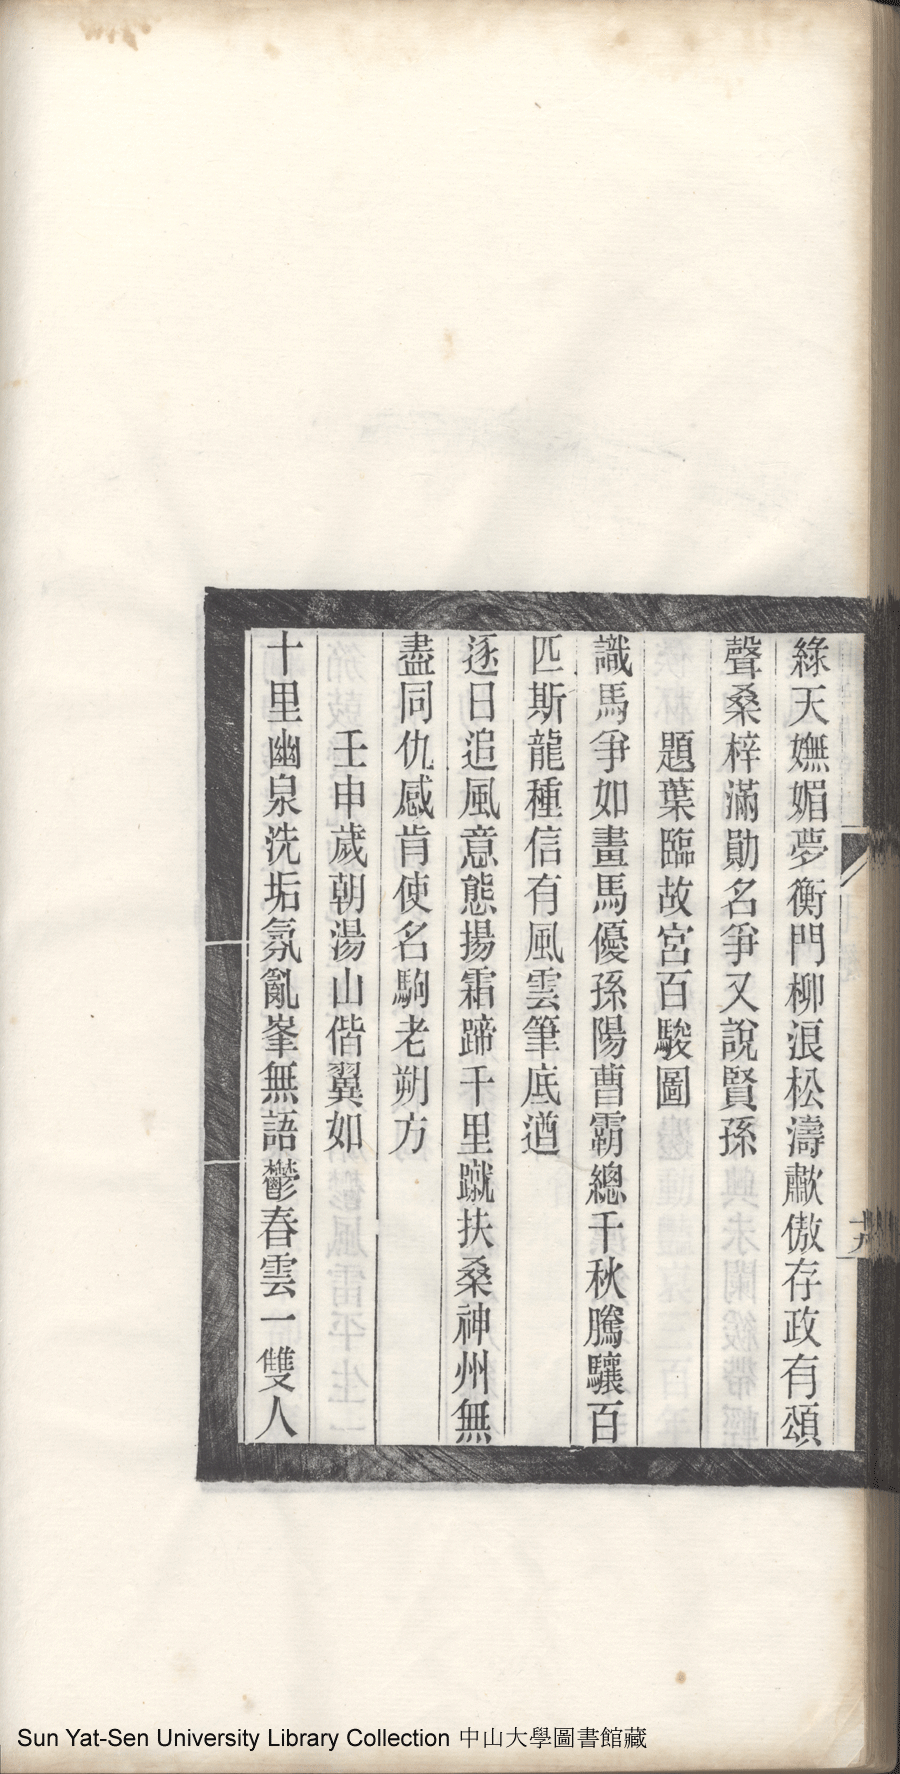 綠天嫵媚夢衡門柳浪松濤歗傲存政有頌
聲桑梓滿勛名爭又說賢孫
題葉臨故宮百駿圖
識馬爭如畫馬優孫陽曹霸總千秋騰驤百
匹斯龍種信有風雲筆底遒
逐日追風意態揚霜蹄千里蹴扶桑神州無
盡同仇感肯使名駒老朔方
壬申歲朝湯山偕翼如
十里幽泉洗垢氛亂峯無語鬱春雲一雙人
十九
Sun Yat-Sen University Library Collection 中山大學圖書館藏